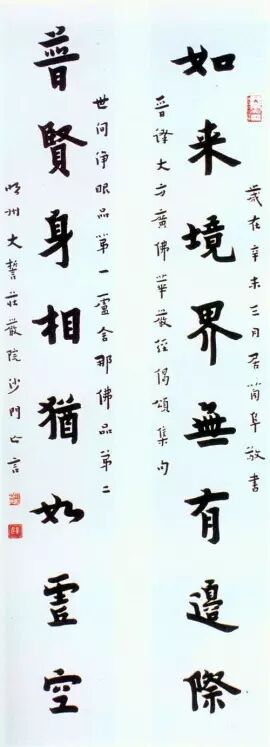 歲在辛未三月居阜敬書
如来境界無有邊際
晉譯大方廣佛華嚴經偈頌集句
世間淨眼品第一盧舍那佛品第二
普賢身相猶如虛空
明州大誓莊嚴院沙門亡言